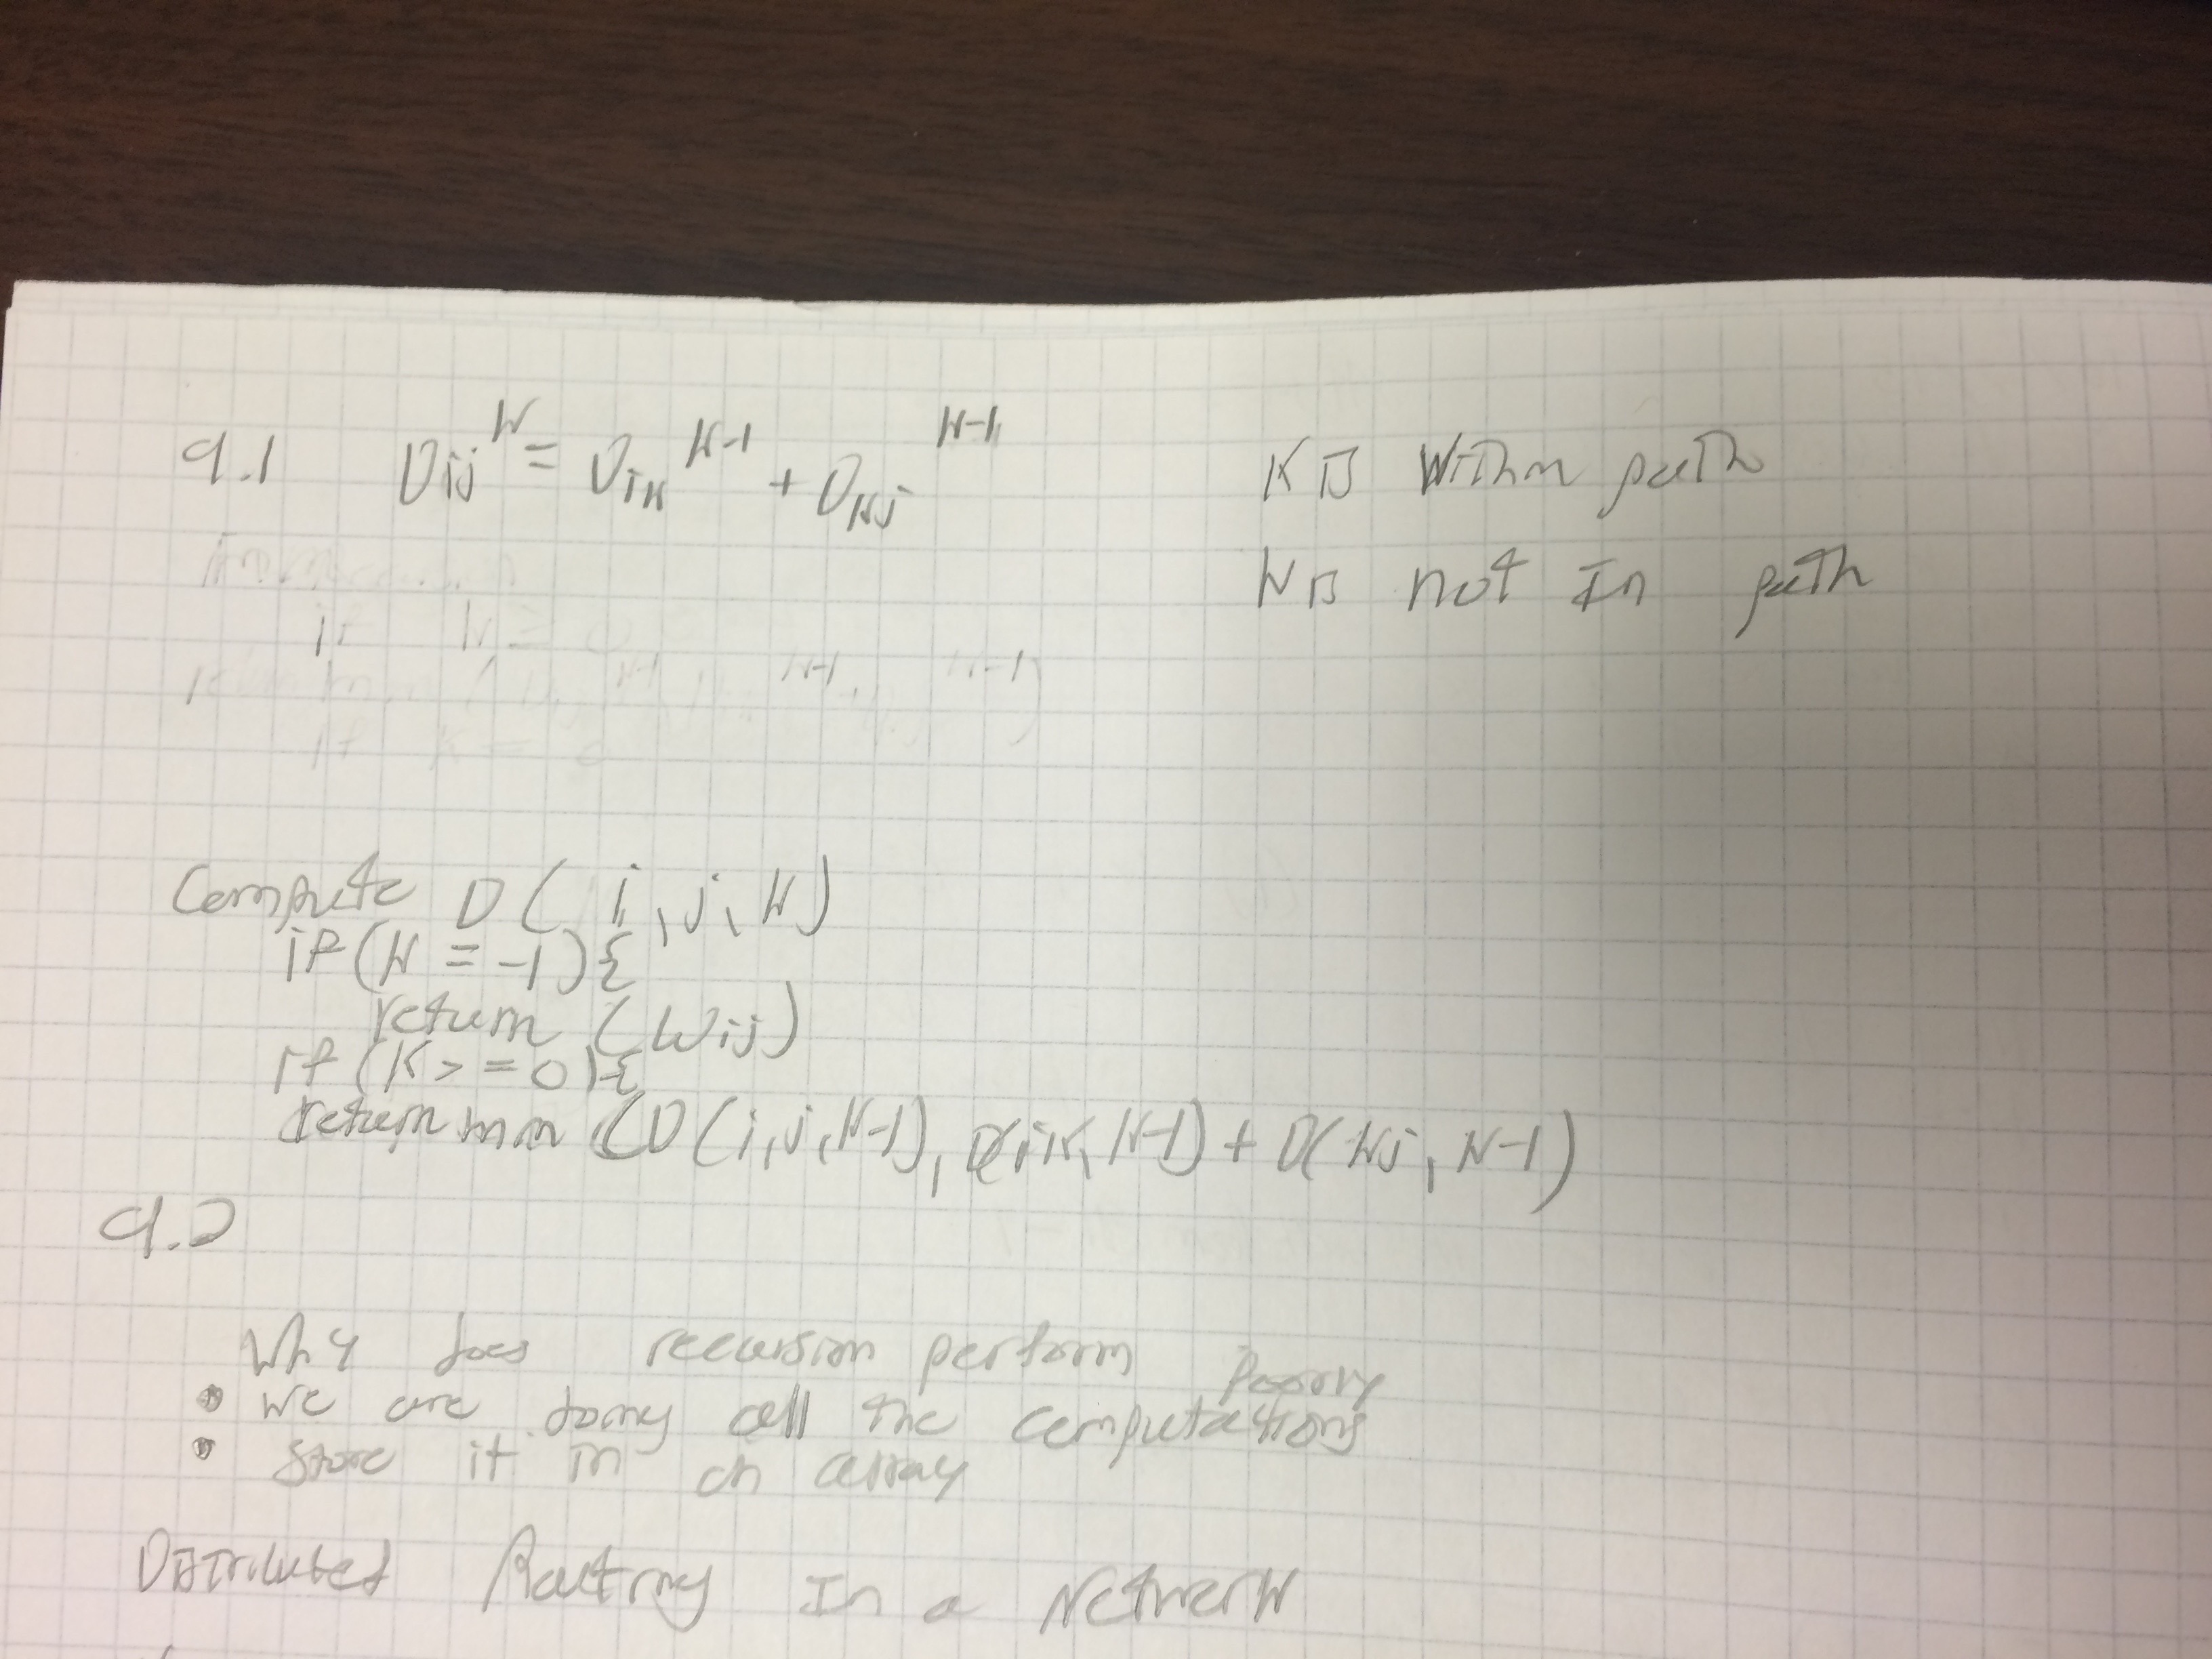 9.1 Dij^K = Dik^K-1 + Dkj^K-1
K is within path
K is not in path
if K = 0
if K = 0
Compute D(i,j,K)
if(K = -1){
return (Wij)
if(K>=0){
return min (D(i,j,K-1), D(i,K,K-1) + D(Kj, K-1)
9.2
Why does recursion perform poorly
• We are doing all the computations
• store it in an array
Distributed Routing In a Network